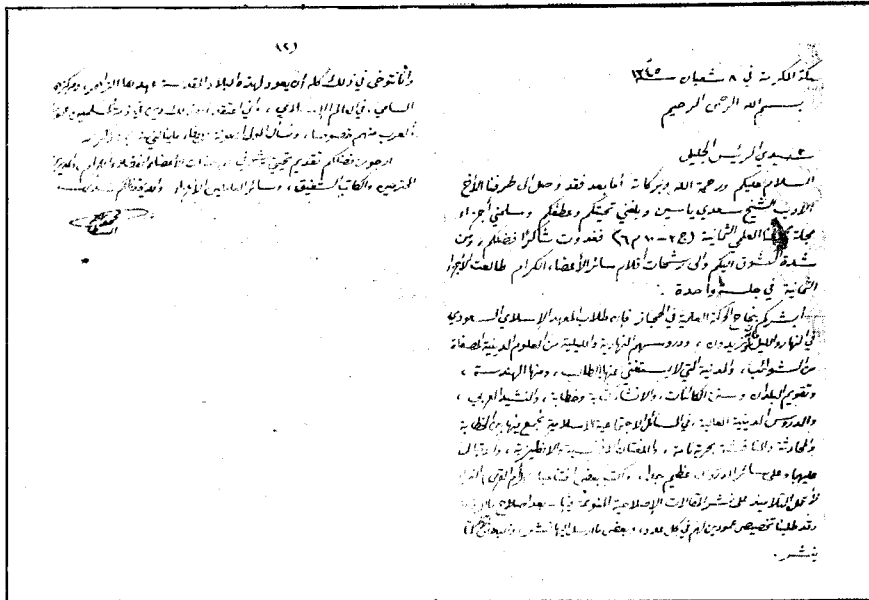 مكة المكرمة في ٨ شعبان ١٣٤٥
بسم الله الرحمن الرحيم
سيدي الرئيس الجليل
السلام عليكم ورحمة الله وبركاته أما بعد فقد وصل الى طرفنا الأخ
الأديب الشيخ سعدي ياسين وبلغني تحيتكم وعطفكم وسلمني أجزاء
مجلة العلمي الثمانية (ج٣-١٠ م٦) فغدوت شاكرًا فضلكم، ومن
شدة الشوق اليكم والى رشحات أقلام سائر الأعضاء الكرام طالعت الأجزاء
الثمانية في جلسة واحدة .
أبشركم بنجاح الحركة العلمية في الحجاز فإن طلاب المعهد الإسلامي السعودي
في النهار والليل يزيدون، ودروسهم النهارية والليلية من العلوم الدينية المصفاة
من الشوائب، والمدنية التي لا يستغني عنها الطالب، ومنها الهندسة،
وتقويم البلدان وسنن الكائنات، والانشاء كتابة وخطابة، والنشيد العربي،
والدروس الدينية العالية، في المسائل الاجتماعية الاسلامية تجمع فيها بين الخطابة
والمحادثة والمناقشة بحرية تامة، واللغتان الافرنسية والانكليزية، والاقبال
عليها وعلى سائر الدروس عظيم جدا، وكتبت بعض افتتاحيات أم القرى
لأحمل التلاميذ على نشر المقالات الإصلاحية المتنوعة فيها - بعد اصلاح
وقد طلبنا تخصيص عمودين لهم في كل عدد، وبعض ما أرسل اليها نشر، والباقي
ينشر .
(٢)
وأنا نتوخى في ذلك كله أن يعود لهذه البلاد المقدسة عهدها الزاهر، ومركزها
السامي، في العالم الإسلامي، وأني أعتقد أن ذلك دين في ذمة المسلمين
العرب منهم خصوصا، ونسأل المولى المعونة
ارجو من فضلكم تقديم تحيتي وشوقي الى حضرات الأعضاء الفضلاء والكرام،
المحترمين والكاتب الشفيق، وسائر العاملين الأبرار